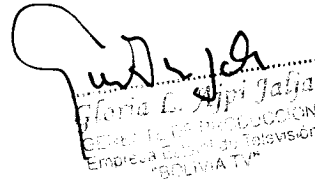 Gloria L. Ajpi Jalja
GERENTE DE PRODUCCIÓN
Empresa Estatal de Televisión
"BOLIVIA TV"